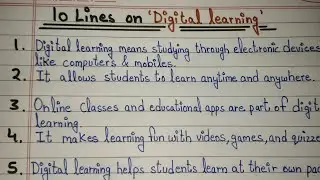 10 Lines on 'Digital learning'
1. Digital learning means studying through electronic devices
like computers & mobiles.
2. It allows students to learn anytime and anywhere.
3. Online classes and educational apps are part of digit
learning.
4. It makes learning fun with videos, games, and quizze
5. Digital learning helps students learn at their own pac